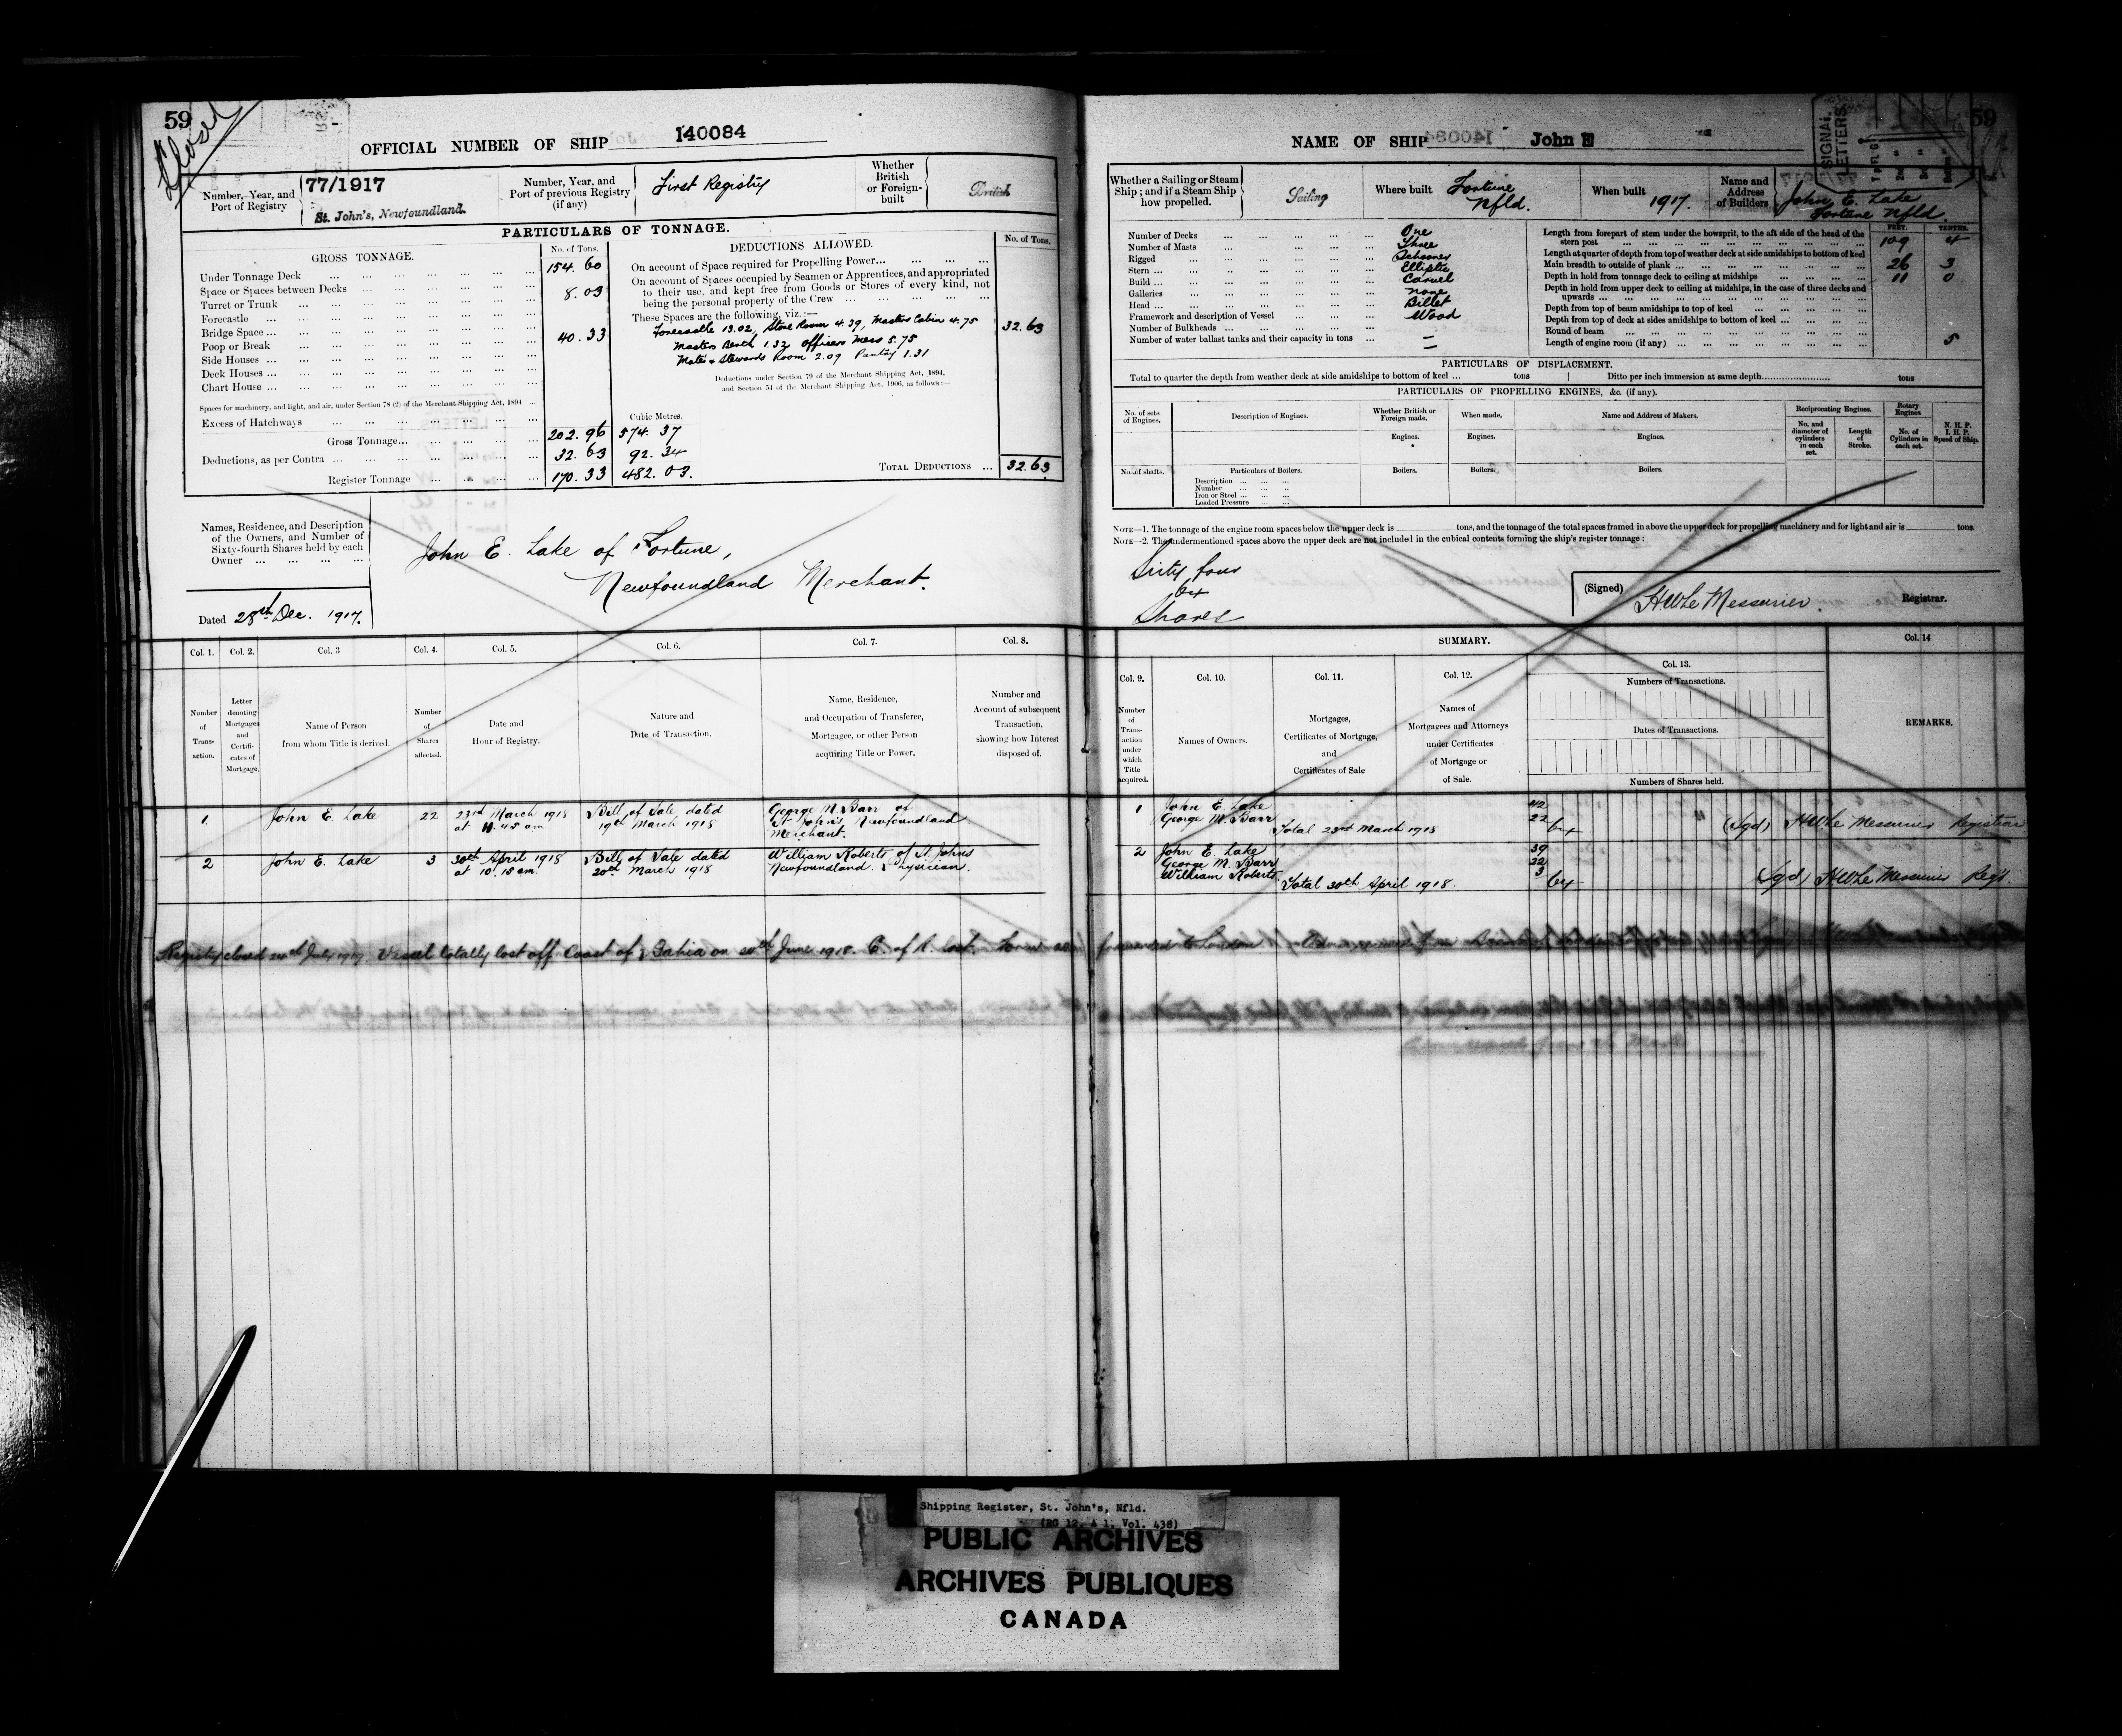 59
Closed
OFFICIAL NUMBER OF SHIP 140084
Number, Year, and Port of Registry
77/1917
St. John's, Newfoundland.
Number, Year, and Port of previous Registry (if any)
First Registry
Whether British or Foreign-built
British
PARTICULARS OF TONNAGE.
GROSS TONNAGE.
No. of Tons.
Under Tonnage Deck ... 154.60
Space or Spaces between Decks
Turret or Trunk 8.03
Forecastle ...
Bridge Space ...
Poop or Break 40.33
Side Houses ...
Deck Houses ...
Chart House ...
Spaces for machinery, and light, and air, under Section 78 (2) of the Merchant Shipping Act, 1894 ...
Excess of Hatchways
Cubic Metres.
Gross Tonnage... 202.96 574.37
Deductions, as per Contra ... 32.63 92.34
Register Tonnage 170.33 482.03.
DEDUCTIONS ALLOWED.
No. of Tons.
On account of Space required for Propelling Power...
On account of Spaces occupied by Seamen or Apprentices, and appropriated
to their use, and kept free from Goods or Stores of every kind, not
being the personal property of the Crew ...
These Spaces are the following, viz.:—
Forecastle 13.02, Store Room 4.39, Masters Cabin 4.75 32.63
Masters Berth 1.32 Officers Mess 5.75
Mates & Stewards Room 2.09 Pantry 1.31
Deductions under Section 79 of the Merchant Shipping Act, 1894,
and Section 54 of the Merchant Shipping Act, 1906, as follows:—
TOTAL DEDUCTIONS ... 32.63
Names, Residence, and Description
of the Owners, and Number of
Sixty-fourth Shares held by each
Owner ...
John E. Lake of Fortune,
Newfoundland Merchant.
Dated 28th Dec. 1917.
Col. 1.
Number of Transaction.
Col. 2.
Letter denoting Mortgages and Certificates of Mortgage.
Col. 3
Name of Person from whom Title is derived.
Col. 4.
Number of Shares affected.
Col. 5.
Date and Hour of Registry.
Col. 6.
Nature and Date of Transaction.
Col. 7.
Name, Residence, and Occupation of Transferee, Mortgagee, or other Person acquiring Title or Power.
Col. 8.
Number and Account of subsequent Transaction, showing how Interest disposed of.
1. John E. Lake 22 23rd March 1918 at 11.45 am Bill of Sale dated 19th March 1918 George M. Barr of St John's, Newfoundland Merchant.
2 John E. Lake 3 30th April 1918 at 10.15 am. Bill of Sale dated 20th March 1918 William Roberts of St. Johns Newfoundland. Physician.
Registry closed July 1919. Vessel totally lost off Coast of Bahia on June 1918. C. of R. lost.
59
NAME OF SHIP John E
SIGNAL LETTERS
Whether a Sailing or Steam Ship; and if a Steam Ship how propelled.
Sailing
Where built
Fortune Nfld.
When built
1917.
Name and Address of Builders
John E. Lake
Fortune Nfld.
Number of Decks ... One
Number of Masts ... Three
Rigged ... Schooner
Stern ... Elliptic
Build ... Carvel
Galleries ... None
Head ... Billet
Framework and description of Vessel ... Wood
Number of Bulkheads ... —
Number of water ballast tanks and their capacity in tons ... —
FEET. TENTHS.
Length from forepart of stem under the bowsprit, to the aft side of the head of the stern post ... 109 4
Length at quarter of depth from top of weather deck at side amidships to bottom of keel
Main breadth to outside of plank ... 26 3
Depth in hold from tonnage deck to ceiling at midships ... 11 0
Depth in hold from upper deck to ceiling at midships, in the case of three decks and upwards ...
Depth from top of beam amidships to top of keel ...
Depth from top of deck at sides amidships to bottom of keel ...
Round of beam ... 5
Length of engine room (if any) ...
PARTICULARS OF DISPLACEMENT.
Total to quarter the depth from weather deck at side amidships to bottom of keel ... tons
Ditto per inch immersion at same depth... tons
PARTICULARS OF PROPELLING ENGINES, &c. (if any).
No. of sets of Engines.
Description of Engines.
Whether British or Foreign made.
When made.
Name and Address of Makers.
Reciprocating Engines.
Rotary Engines
Engines.
Engines.
Engines.
No. and diameter of cylinders in each set.
Length of Stroke.
No. of Cylinders in each set.
N. H. P.
I. H. P.
Speed of Ship.
No. of shafts.
Particulars of Boilers.
Boilers.
Boilers.
Boilers.
Description ...
Number ...
Iron or Steel ...
Loaded Pressure ...
NOTE—1. The tonnage of the engine room spaces below the upper deck is tons, and the tonnage of the total spaces framed in above the upper deck for propelling machinery and for light and air is tons.
NOTE—2. The undermentioned spaces above the upper deck are not included in the cubical contents forming the ship's register tonnage:
Sixty four
64
Shares
(Signed) HW Le Messurier. Registrar.
SUMMARY.
Col. 9.
Number of Transaction under which Title acquired.
Col. 10.
Names of Owners.
Col. 11.
Mortgages, Certificates of Mortgage, and Certificates of Sale
Col. 12.
Names of Mortgagees and Attorneys under Certificates of Mortgage or of Sale.
Col. 13.
Numbers of Transactions.
Dates of Transactions.
Numbers of Shares held.
Col. 14
REMARKS.
1 John E. Lake 42
George M. Barr 22
Total 23rd March 1918 64 (Sgd) HW Le Messurier Registrar
2 John E. Lake 39
George M. Barr 22
William Roberts 3
Total 30th April 1918. 64 (Sgd) HW Le Messurier Regr.
forwarded to London.
Shipping Register, St. John's, Nfld.
(RG 12, A 1, Vol. 438)
PUBLIC ARCHIVES
ARCHIVES PUBLIQUES
CANADA